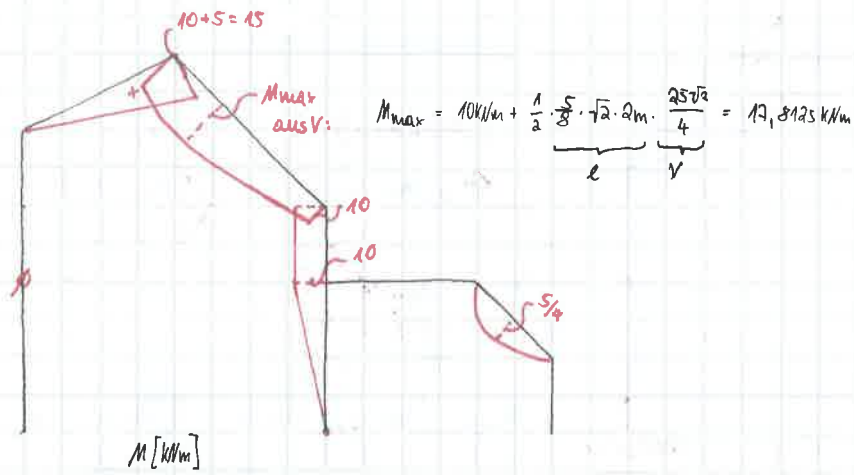 10+5=15
+
Mmax
aus V:
Mmax = 10kNm + 1/2 · 5/8 · √2 · 2m · 25√2/4 = 17,8125 kNm
l
V
10
10
5/4
M [kNm]